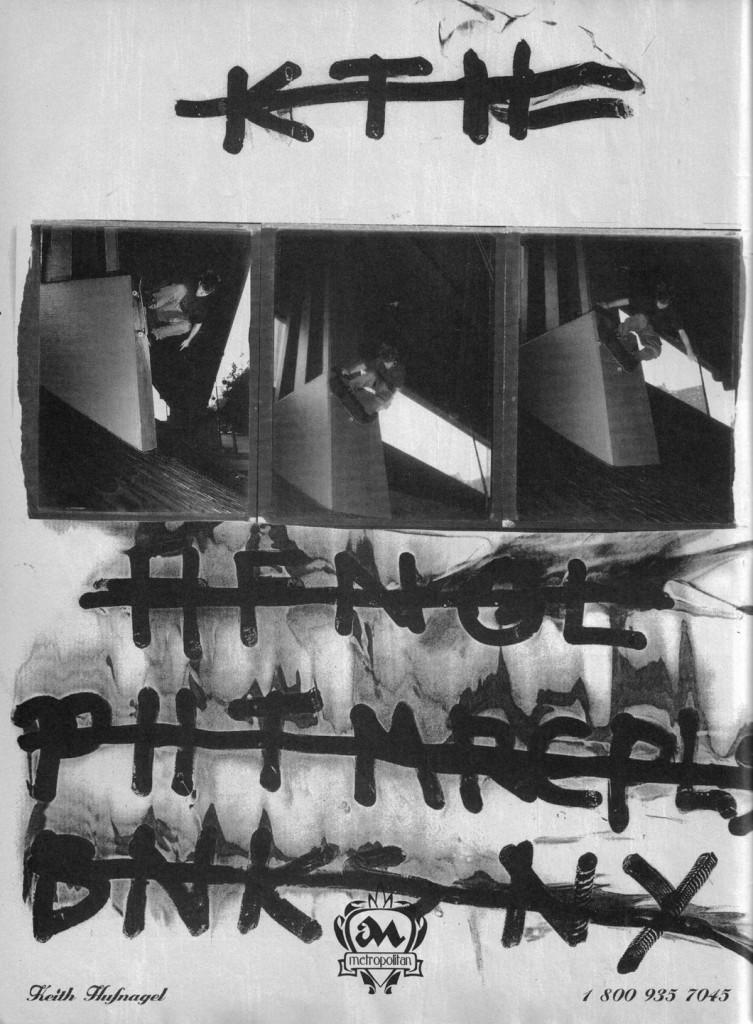 KTH
HFNGL
PHT MREPL
BNK NY
metropolitan
Keith Hufnagel 1 800 935 7045